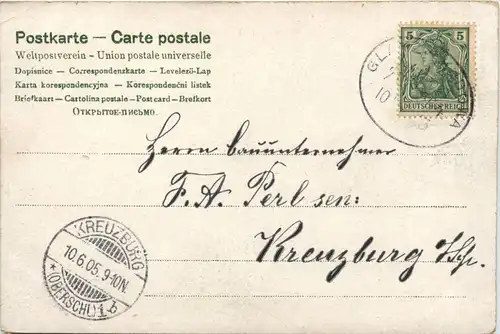 Postkarte — Carte postale
Weltpostverein - Union postale universelle
Dopisnice — Correspondenzkarte — Levelező-Lap
Karta korespondencyjna — Korespondenční listek
Briefkaart — Cartolina postale — Post card — Brefkort
Открытое-письмо.
5 5
DEUTSCHES REICH
10
Herrn Bauunternehmer
F. A. Perl sen:
Kreuzburg
KREUZBURG
10.6.05. 9-10N.
*(OBERSCHL.)1.b